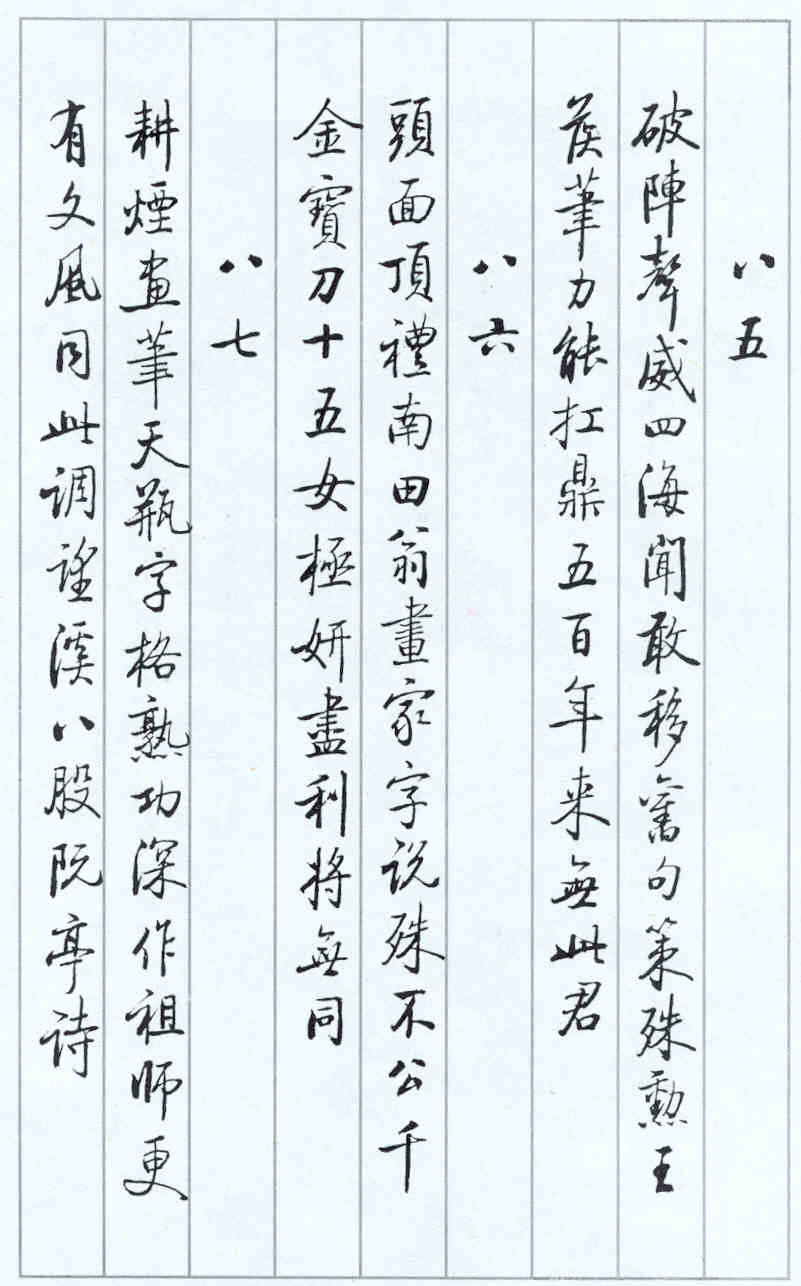 八五
破陣聲威四海聞敢移舊句策殊勳王
侯筆力能扛鼎五百年來無此君
八六
頭面頂禮南田翁畫家字說殊不公千
金寶刀十五女極妍盡利將無同
八七
耕煙畫筆天瓶字格熟功深作祖師更
有文風同此调望溪八股阮亭诗